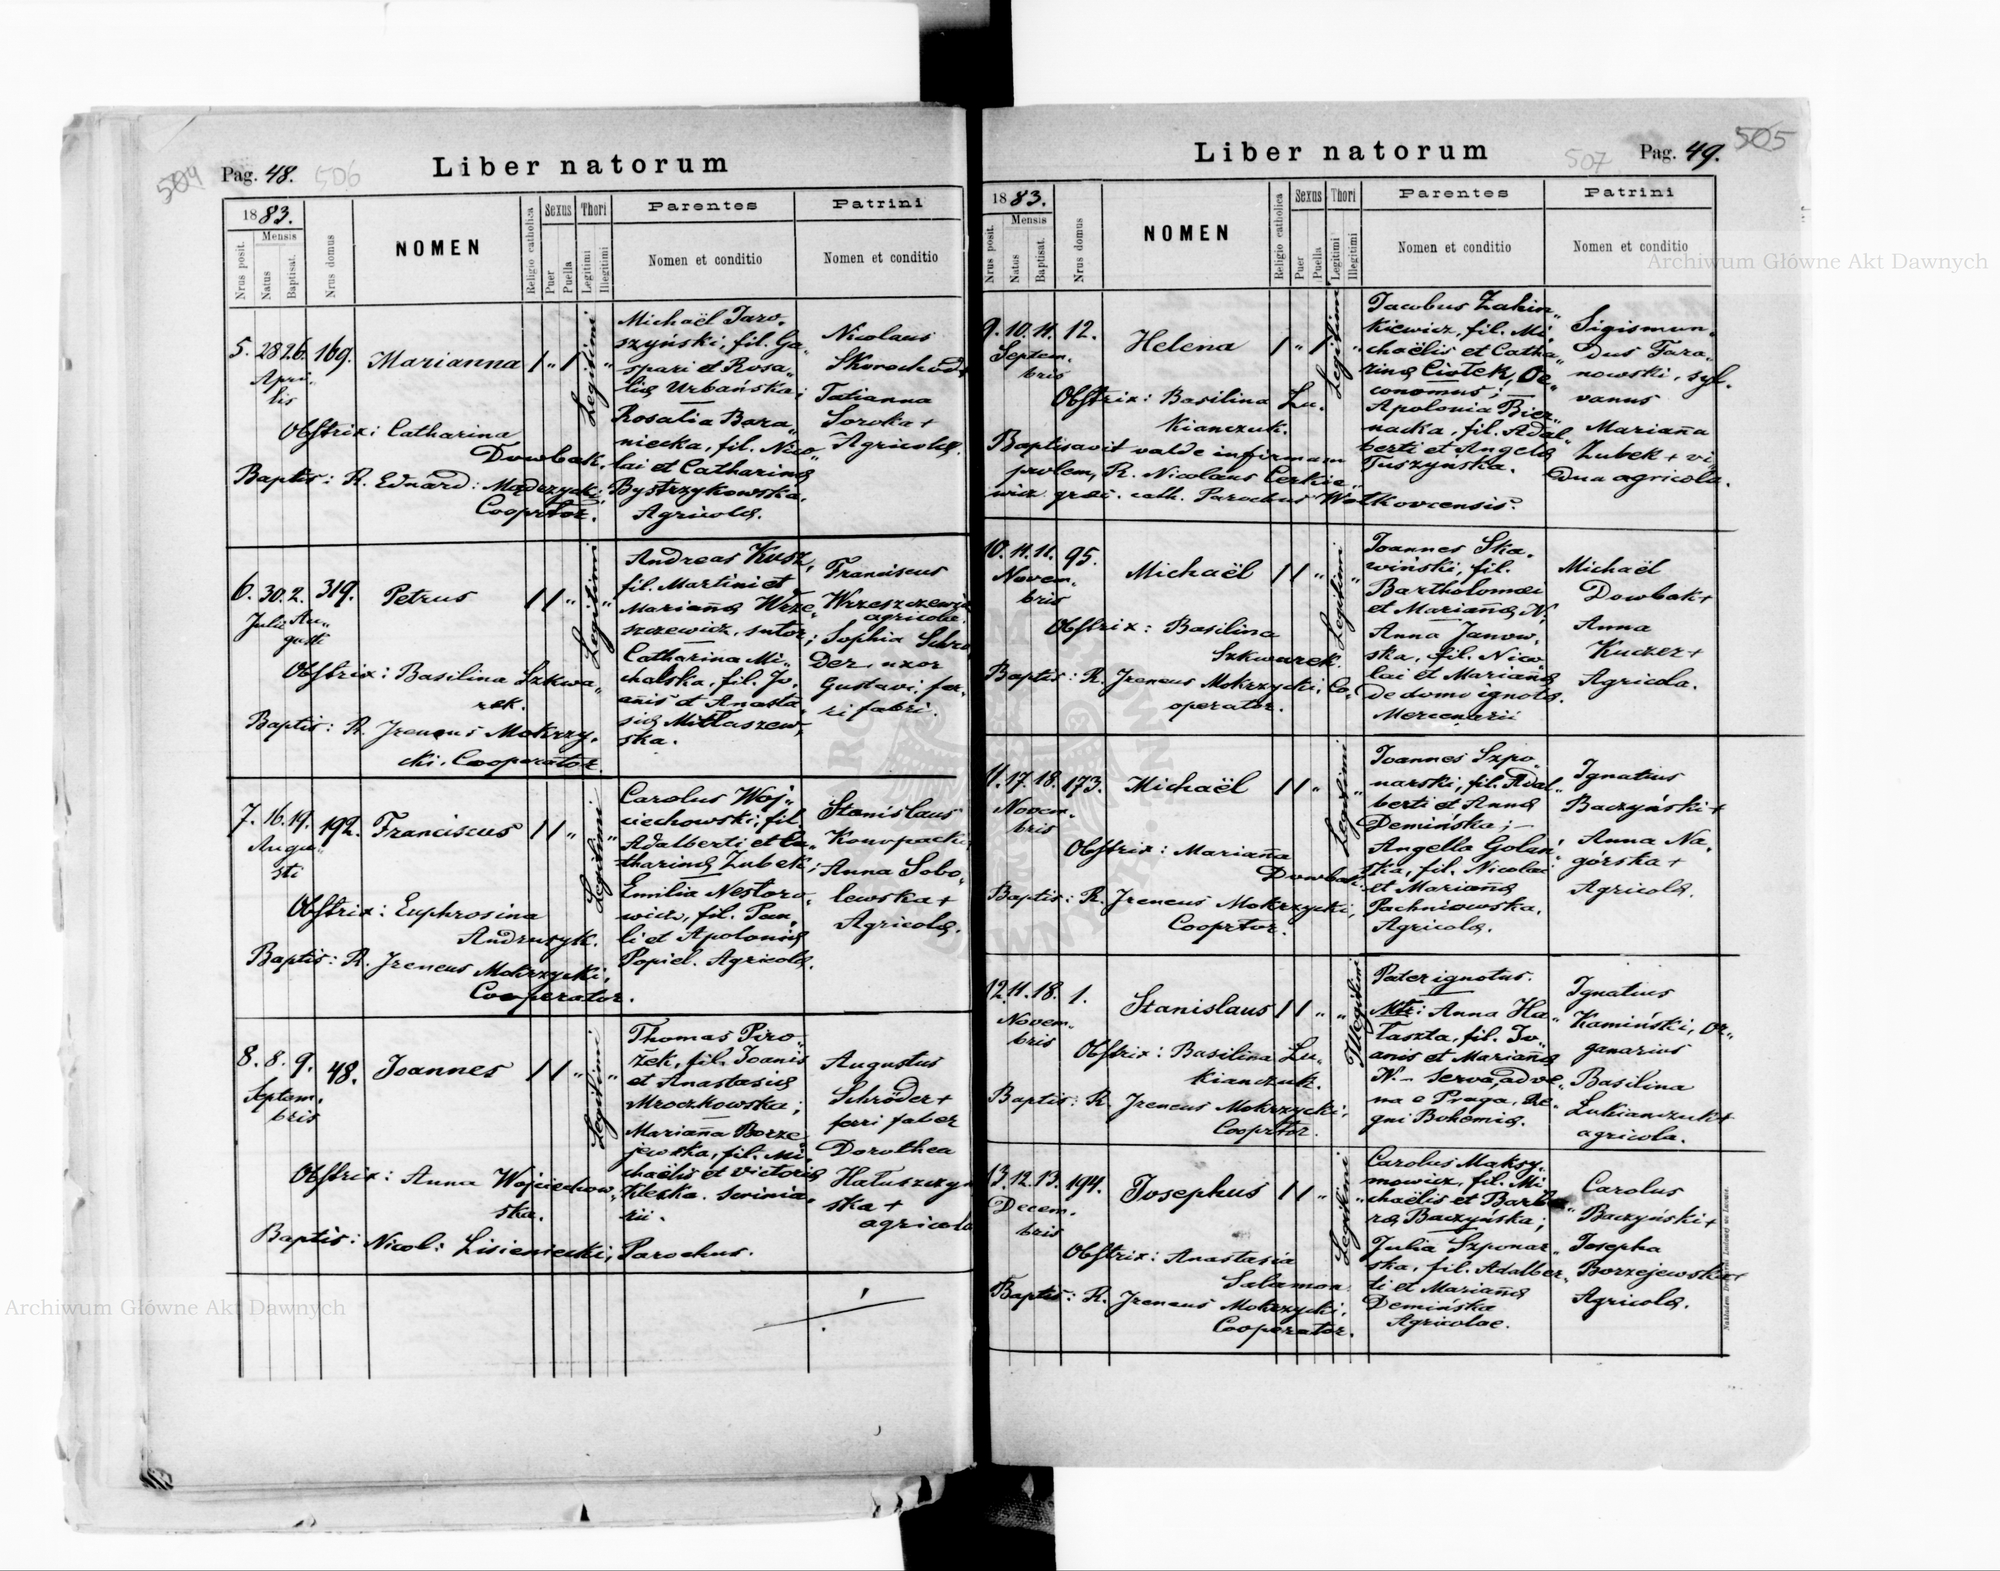 504
Pag. 48.
506
Liber natorum
1883.
Mensis
Nrus posit.
Natus
Baptisat.
Nrus domus
NOMEN
Religio catholica
Sexus
Puer
Puella
Thori
Legitimi
Illegitimi
Parentes
Nomen et conditio
Patrini
Nomen et conditio
5. 28 26. 169. Marianna
Apri-
lis
Obstrix: Catharina
Dowbak.
Baptis: R. Eduard: Mądrzycki,
Cooprtor.
Legitimi
Michaël Jaro-
szyński, fil. Ga-
spari et Rosa-
liæ Urbańska;
Rosalia Bara-
niecka, fil. Nico-
lai et Catharinæ
Bystrzykowska.
Agricolæ.
Nicolaus
Skorochod +
Tatianna
Soroka +
Agricolæ.
6. 30. 2. 319. Petrus
Julii Au-
gusti
Obstrix: Basilina Szkwa-
rek.
Baptis: R. Ireneus Mokrzy-
cki, Cooperator.
Legitimi
Andreas Kusz,
fil. Martini et
Mariannæ Wrze-
szczewicz, sutor;
Catharina Mi-
chalska, fil. Jo-
anis et Anasta-
siæ Mittaszew-
ska.
Franciscus
Wrzeszczewicz
agricola.
Sophia Schrö
der, uxor
Gustavi, fer-
ri fabri.
7. 16. 19. 192. Franciscus
Augu-
sti
Obstrix: Euphrosina
Andrusyk.
Baptis: R. Ireneus Mokrzycki,
Cooperator.
Legitimi
Carolus Woj-
ciechowski, fil.
Adalberti et Ca-
tharinæ Zubek;
Emilia Nestoro-
wicz, fil. Pau-
li et Apoloniæ
Popiel. Agricolæ.
Stanislaus
Konopacki,
Anna Sobo-
lewska +
Agricolæ.
8. 8. 9. 48. Joannes
Septem-
bris
Obstrix: Anna Wojciechow-
ska.
Baptis: Nicol: Lisieniecki, Parochus.
Legitimi
Thomas Piro-
żek, fil. Joanis
et Anastasiæ
Mroczkowska;
Marianna Borze-
jewska, fil. Mi-
chaëlis et Victoriæ
Kleska. Servinia-
rii.
Augustus
Schröder +
ferri faber
Dorothea
Hałuszczyń
ska +
agricola
505
Liber natorum
507
Pag. 49.
1883.
Mensis
Nrus posit.
Natus
Baptisat.
Nrus domus
NOMEN
Religio catholica
Sexus
Puer
Puella
Thori
Legitimi
Illegitimi
Parentes
Nomen et conditio
Patrini
Nomen et conditio
Archiwum Główne Akt Dawnych
9. 10. 11. 12. Helena
Septem-
bris
Obstrix: Basilina Lu-
kianczuk.
Baptisavit valde infirmam
prolem, R. Nicolaus Cerkie-
wicz græc. cath. Parochus Wołkovcensis.
Legitimi
Jacobus Zahin-
kiewicz, fil. Mi-
chaëlis et Catha-
rinæ Ciołek, Oe-
conomus;
Apolonia Bier-
nacka, fil. Adal-
berti et Angelæ
Tuszyńska.
Sigismun-
dus Tara-
nowski, syl-
vanus
Marianna
Zubek + vi-
dua agricola.
10. 11. 11. 95. Michaël
Novem-
bris
Obstrix: Basilina
Szkwarek.
Baptis: R. Ireneus Mokrzycki, Co-
operator.
Legitimi
Joannes Ska-
wiński, fil.
Bartholomæi
et Mariannæ N.
Anna Janow-
ska, fil. Nico-
lai et Mariannæ
de domo ignotæ.
Mercenarii
Michaël
Dowbak +
Anna
Kuczer +
Agricola.
11. 17. 18. 173. Michaël
Novem-
bris
Obstrix: Marianna
Dowbak.
Baptis: R. Ireneus Mokrzycki,
Cooprtor.
Legitimi
Joannes Szpo-
narski, fil. Adal-
berti et Annæ
Demińska;
Angella Golań-
ska, fil. Nicolai
et Mariannæ
Pachniowska.
Agricolæ.
Ignatius
Baczyński +
Anna Na-
górska +
Agricolæ.
12. 11. 18. 1. Stanislaus
Novem-
bris
Obstrix: Basilina Lu-
kianczuk.
Baptis: R. Ireneus Mokrzycki,
Cooprtor.
Illegitimi
Pater ignotus.
Mtr: Anna Ha-
łaszta, fil. Jo-
anis et Mariannæ
N. – serva, adve-
na e Praga, Re-
gni Bohemiæ.
Ignatius
Kamiński, or-
ganarius
Basilina
Łukianczuk +
agricola.
13. 12. 13. 194. Josephus
Decem-
bris
Obstrix: Anastasia
Salamon.
Baptis: R. Ireneus Mokrzycki,
Cooperator.
Legitimi
Carolus Maksy-
mowicz, fil. Mi-
chaëlis et Barba-
ræ Baczyńska;
Julia Szponar-
ska, fil. Adalber-
ti et Mariannæ
Demińska
Agricolae.
Carolus
Baczyński +
Josepha
Borzejewska +
Agricolæ.
Archiwum Główne Akt Dawnych